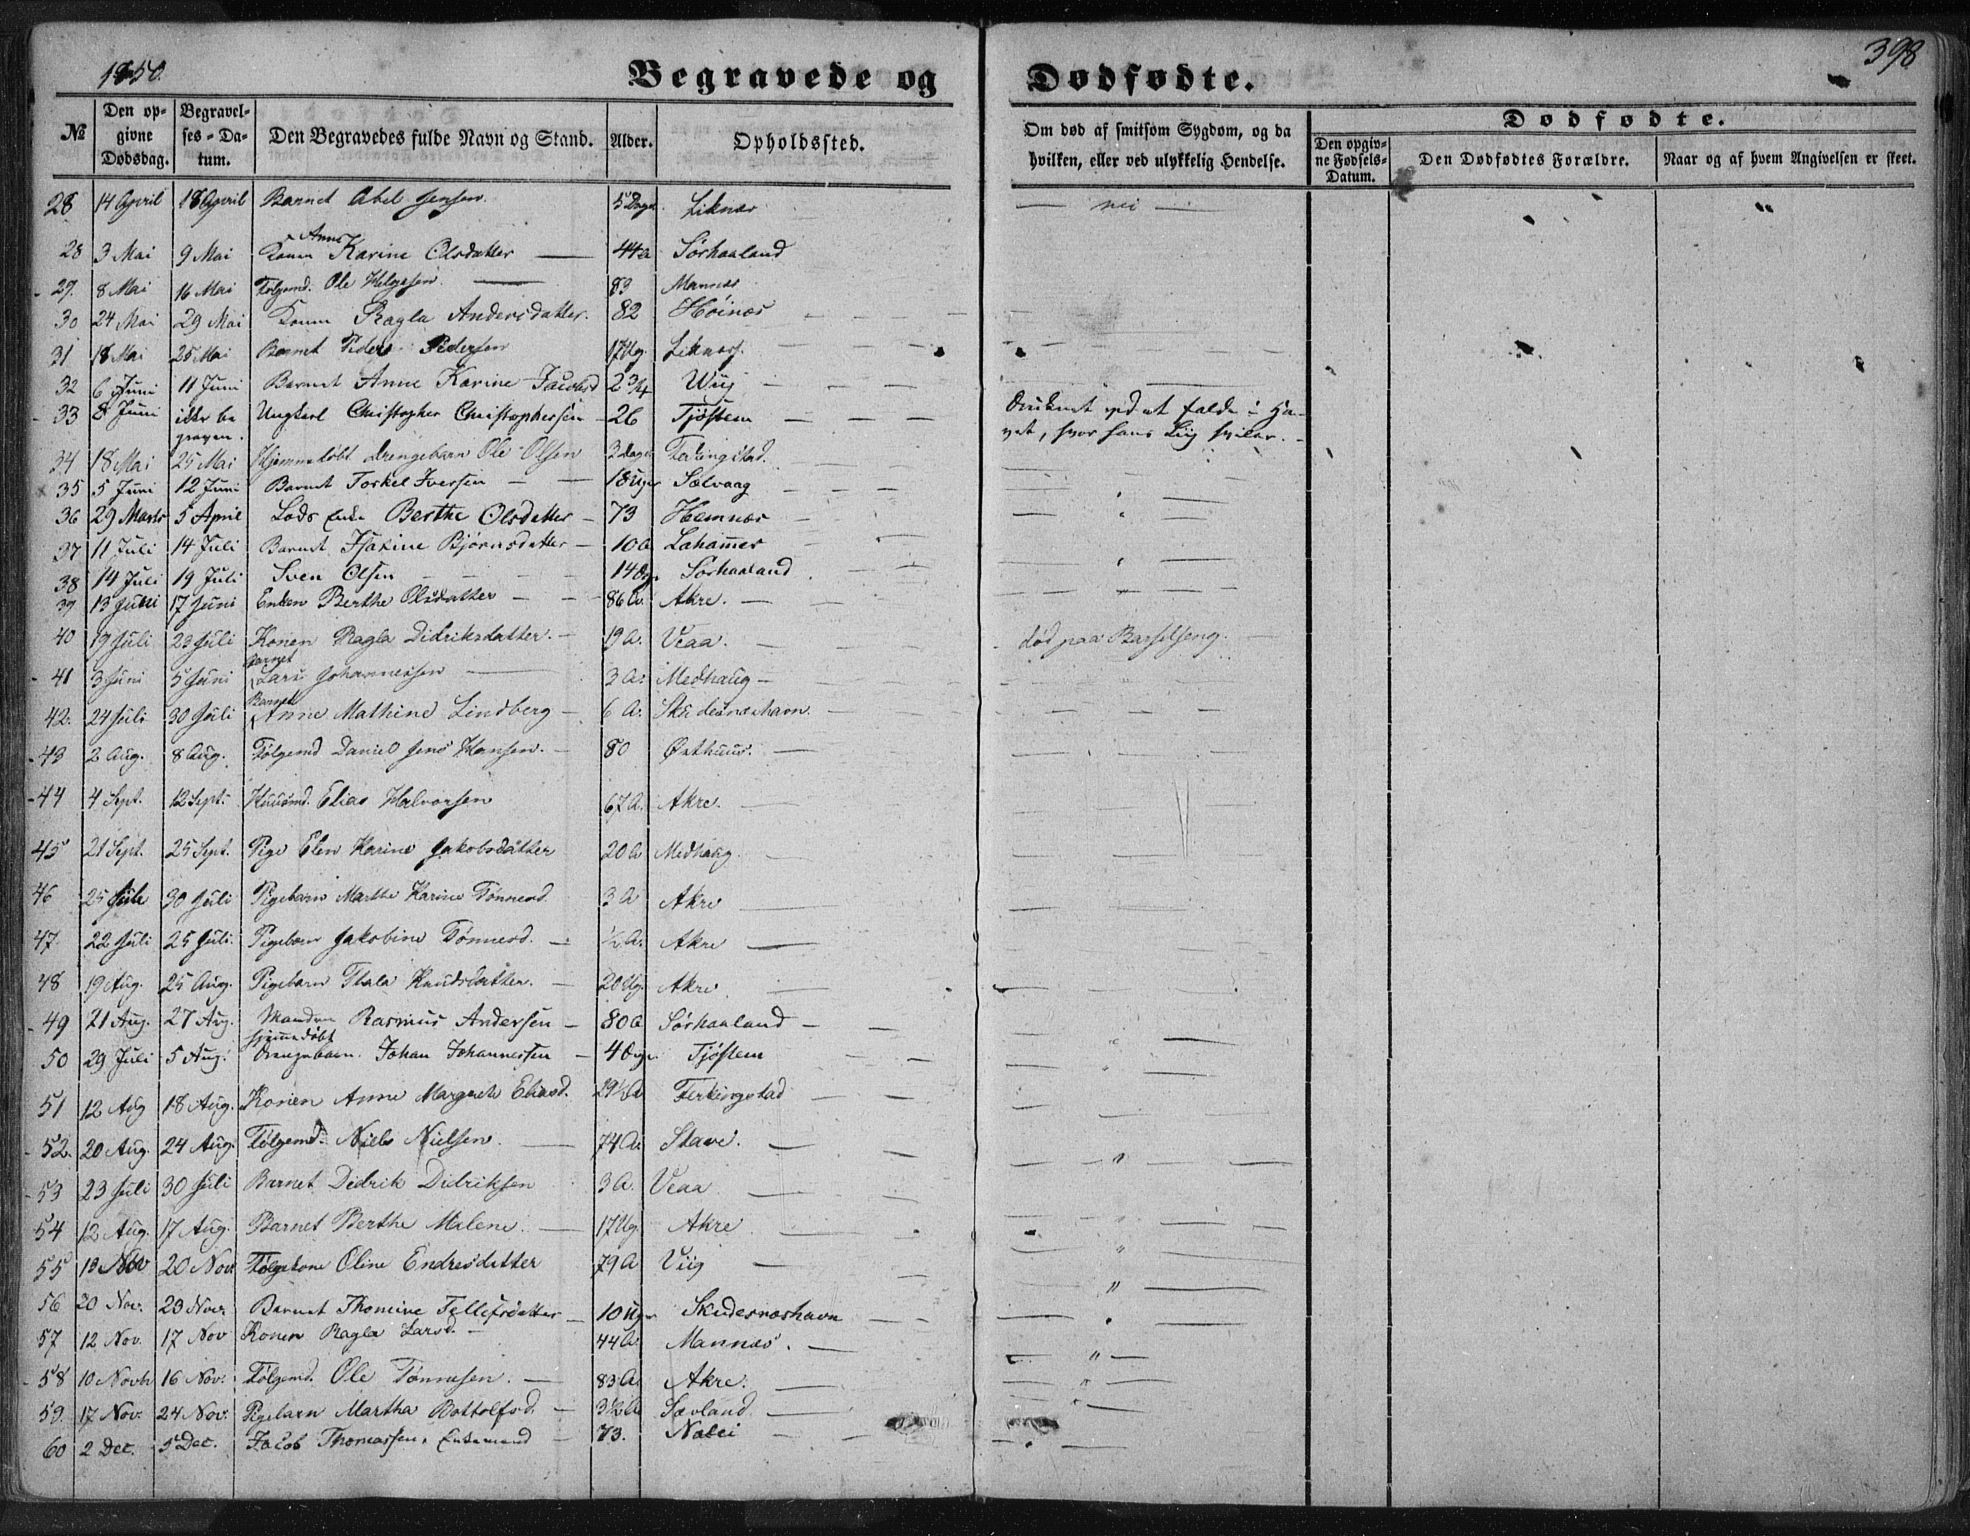 1850.
Begravede og Dødfødte.
398
№
Den opgivne Dødsdag.
Begravelses-Datum.
Den Begravedes fulde Navn og Stand.
Alder.
Opholdssted.
Om død af smitsom Sygdom, og da hvilken, eller ved ulykkelig Hendelse.
Dødfødte.
Den opgivne Fødsels-Datum.
Den Dødfødtes Forældre.
Naar og af hvem Angivelsen er skeet.
28 14 April 18 April Barnet Abel Jensen 5 Dage Liknæs — nei —
28 3 Mai 9 Mai Konen Anne Karine Olsdatter — 44 a Sørhaaland
29. 8 Mai 16 Mai Følgemd. Ole Helgesen — 83 Mannes
30 24 Mai 29 Mai Konen Ragla Andersdatter. 82 Høinæs
31 18 Mai 25 Mai Barnet Peder Pedersen 17 Ug. Liknæs
32 6 Juni 11 Juni Barnet Anne Karine Jacobsd 2 3/4
33 8 Juni ikke begraven. Ungkarl Christopher Christophersen 26 Tjøstem Druknet ved at falde i Havet, hvor hans Liig hviler.
34 18 Mai 25 Mai Hjemmedøbt Drengebarn Ole Olsen 3 dage Ferkingstad.
35 5 Juni 12 Juni Barnet Torkel Iversen 18 Uger Sælvaag
36 29 Marts 5 April Lods Enke Berthe Olsdatter 73 Hemnæs
37 11 Juli 14 Juli Barnet Bjørnsdatter 10 a Lahammer
38 14 Juli 19 Juli Sven Olsen 14 Dge Sørhaaland
39 13 Juni 17 Juni Enken Berthe Olsdatter 86 a. Akre.
40 19 Juli 23 Juli Konen Ragla Didriksdatter. 19 A. Veaa. død paa Barselseng.
41 3 Juni 5 Juni Barnet Lars Johannessen 3 A. Medhaug
42. 24 Juli 30 Juli Barnet Anne Mathine Lindberg 6 A. Skudesnæshavn.
43 2 Aug. 8 Aug. Følgemd Daniel Jens Hansen. 80 Østhuus.
44 4 Sept. 12 Sept. Huusmd. Elias Halvorsen 67 A. Akre.
45 21 Sept. 25 Sept. Pige Elen Karine Jakobsdatter 20 A Medhaug.
46 25 Juli 30 Juli Pigebarn Marthe Karine Tønnesd. 3 A Akre
47. 22 Juli 25 Juli. Pigebarn Jakobine Tønnesd. 1/2 A. Akre
48 19 Aug. 25 Aug. Pigebarn Thala Knudsdatter. 20 Ug. Akre
49 21 Aug. 27 Aug. Manden Rasmus Andersen 80 a Sørhaaland
50 29 Juli 5 Aug. hjemmedøbt Drengebarn. Johan Johannessen 4 Dage Tjøstem
51 12 Aug 18 Aug. Konen Anne Margrete Eliasd. 29 1/2 A Ferkingstad
52. 20 Aug. 24 Aug. Følgemd. Niels Nielsen. 74 A. Stave.
53 23 Juli 30 Juli Barnet Didrik Didriksen 3 A. Veaa
54 12 Aug. 17 Aug. Barnet Berthe Malene. 17 Ug. Akre
55 13 Nov 20 Nov Følgekone Oline Endresdatter 79 A Viig
56 20 Nov. 23 Nov. Barnet Thomine Tellefsdatter 10 Uger Skudesnæshavn
57 12 Nov. 17 Nov Konen Ragla Larsd. 44 A. Mannæs.
58 10 Novbr 16 Nov. Følgemd. Ole Tønnesen. 83 A. Akre.
59. 17 Nov. 24 Nov. Pigebarn Martha Bottolfsd. 3 1/2 A Sævland
60 2 Dec. 5 Dec. Jacob Thomassen, Enkemand 73.